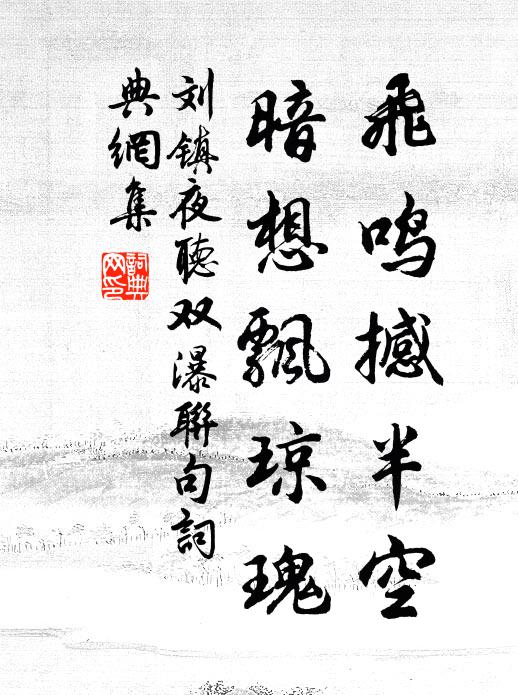 飛鳴撼半空
暗想飄琼瑰
刘镇夜聽双瀑聯句詞
典網集
詞典
网印